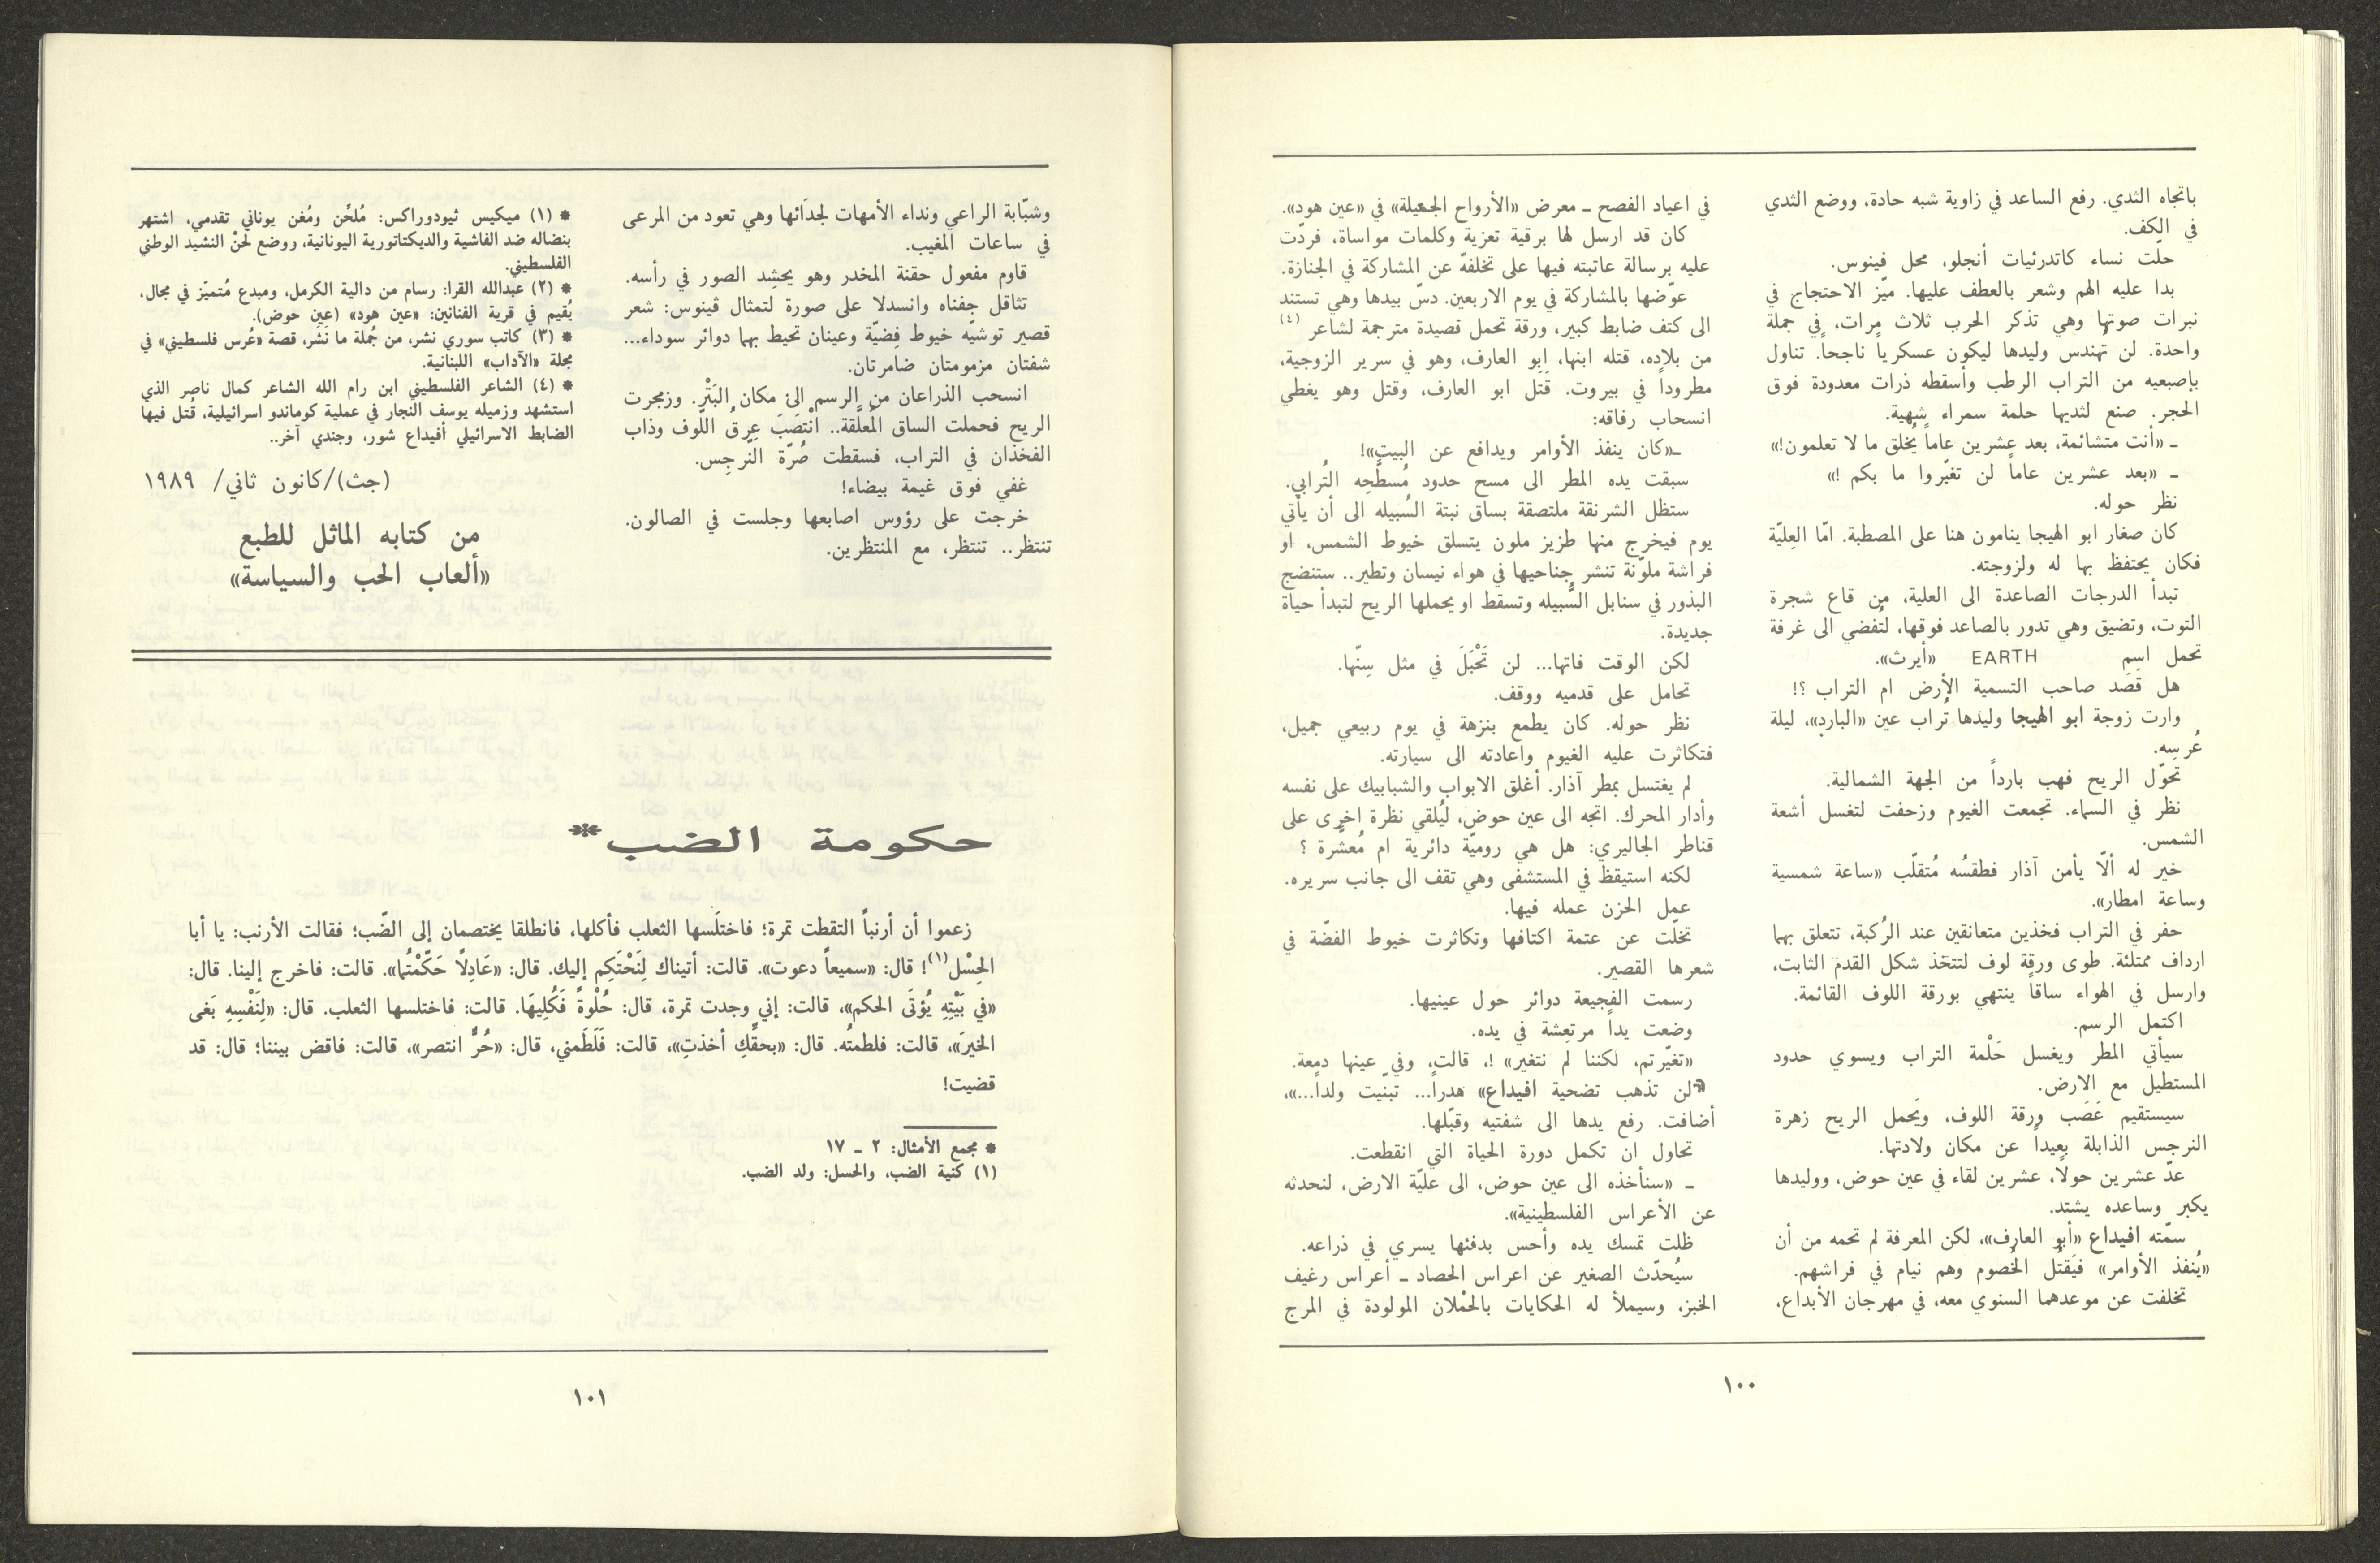 باتجاه الثدي. رفع الساعد في زاوية شبه حادة، ووضع الثدي
في الكف.
حلّت نساء كاتدرئيات أنجلو، محل فينوس.
بدا عليه الهم وشعر بالعطف عليها. ميّز الاحتجاج في
نبرات صوتها وهي تذكر الحرب ثلاث مرات، في جملة
واحدة. لن تهندس وليدها ليكون عسكرياً ناجحاً. تناول
بإصبعيه من التراب الرطب وأسقطه ذرات معدودة فوق
الحجر. صنع لثديها حلمة سمراء شهية.
ـ «أنت متشائمة، بعد عشرين عاماً يُخلق ما لا تعلمون!»
ـ «بعد عشرين عاماً لن تغيّروا ما بكم !»
نظر حوله.
كان صغار ابو الهيجا ينامون هنا على المصطبة. امّا العِليّة
فكان يحتفظ بها له ولزوجته.
تبدأ الدرجات الصاعدة الى العلية، من قاع شجرة
التوت، وتضيق وهي تدور بالصاعد فوقها، لتُفضي الى غرفة
تحمل اسم EARTH «أيرث».
هل قصَد صاحب التسمية الأرض ام التراب ؟!
وارت زوجة ابو الهيجا وليدها تُراب عين «البارد»، ليلة
عُرسِه.
تحوّل الريح فهب بارداً من الجهة الشمالية.
نظر في السماء. تجمعت الغيوم وزحفت لتغسل أشعة
الشمس.
خير له ألّا يأمن آذار فطقسُه مُتقلّب «ساعة شمسية
وساعة امطار».
حفر في التراب فخذين متعانقين عند الرُكبة، تتعلق بهما
ارداف ممتلئة. طوى ورقة لوف لتتخذ شكل القدم الثابت،
وارسل في الهواء ساقا ينتهي بورقة اللوف القائمة.
اكتمل الرسم.
سيأتي المطر ويغسل حَلْمة التراب ويسوي حدود
المستطيل مع الارض.
سيستقيم عَصَب ورقة اللوف، ويَحمل الريح زهرة
النرجس الذابلة بعيداً عن مكان ولادتها.
عدّ عشرين حولا، عشرين لقاء في عين حوض، ووليدها
يكبر وساعده يشتد.
سمّته افيداع «أبو العارف»، لكن المعرفة لم تحمه من أن
«يُنفذ الأوامر» فيَقتُل الخُصوم وهم نيام في فراشهم.
تخلفت عن موعدهما السنوي معه، في مهرجان الأبداع،
في اعياد الفصح ـ معرض «الأرواح الجميلة» في «عين هود».
كان قد ارسل لها برقية تعزية وكلمات مواساة، فردّت
عليه برسالة عاتبته فيها على تخلفهّ عن المشاركة في الجنازة.
عوّضها بالمشاركة في يوم الاربعين. دسّ بيدها وهي تستند
الى كتف ضابط كبير، ورقة تحمل قصيدة مترجمة لشاعر (٤)
من بلاده، قتله ابنها، ابو العارف، وهو في سرير الزوجية،
مطروداً في بيروت. قَتَل ابو العارف، وقتل وهو يغطي
انسحاب رفاقه:
ـ«كان ينفذ الأوامر ويدافع عن البيت»!
سبقت يده المطر الى مسح حدود مُسطَّحِه التُرابي.
ستظل الشرنقة ملتصقة بساق نبتة السُبيله الى أن يأتي
يوم فيخرج منها طزيز ملون يتسلق خيوط الشمس، او
فراشة ملوّنة تنشر جناحيها في هواء نيسان وتطير.. ستنضج
البذور في سنابل السُّبيله وتسقط او يحملها الريح لتبدأ حياة
جديدة.
لكن الوقت فاتها... لن تَحْبَلَ في مثل سِنّها.
تحامل على قدميه ووقف.
نظر حوله. كان يطمع بنزهة في يوم ربيعي جميل،
فتكاثرت عليه الغيوم واعادته الى سيارته.
لم يغتسل بمطر آذار. أغلق الابواب والشبابيك على نفسه
وأدار المحرك. اتجه الى عين حوض، ليُلقي نظرة اخرى على
قناطر الجاليري: هل هي روميّة دائرية ام مُعشَّرة ؟
لكنه استيقظ في المستشفى وهي تقف الى جانب سريره.
عمل الحزن عمله فيها.
تخلّت عن عتمة اكتافها وتكاثرت خيوط الفضّة في
شعرها القصير.
رسمت الفجيعة دوائر حول عينيها.
وضعت يداً مرتعِشة في يده.
«تغيّرتم، لكننا لم نتغير» !، قالت، وفي عينها دمعة.
«لن تذهب تضحية افيداع» هدراً... تبنّيت ولداً...»،
أضافت. رفع يدها الى شفتيه وقبّلها.
تحاول ان تكمل دورة الحياة التي انقطعت.
ـ «سنأخذه الى عين حوض، الى عليّة الارض، لنحدثه
عن الأعراس الفلسطينية».
ظلت تمسك يده وأحس بدفئها يسري في ذراعه.
سيُحدّث الصغير عن اعراس الحصاد ـ أعراس رغيف
الخبز، وسيملأ له الحكايات بالحُمْلان المولودة في المرج
١٠٠
وشبّابة الراعي ونداء الأمهات لجدَائها وهي تعود من المرعى
في ساعات المغيب.
قاوم مفعول حقنة المخدر وهو يحشِد الصور في رأسه.
تثاقل جفناه وانسدلا على صورة لتمثال ڤينوس: شعر
قصير توشيّه خيوط فِضيّة وعينان تحيط بهما دوائر سوداء...
شفتان مزمومتان ضامرتان.
انسحب الذراعان من الرسم الى مكان البَتْر. وزمجرت
الريح فحملت الساق المُعلَّقة.. انْتصَبَ عِرقُ اللّوف وذاب
الفخذان في التراب، فسقطت صُرّة النّرجِس.
غفي فوق غيمة بيضاء!
خرجت على رؤوس اصابعها وجلست في الصالون.
تنتظر.. تنتظر، مع المنتظرين.
* (١) ميكيس ثيودوراكس: مُلحِّن ومُغن يوناني تقدمي، اشتهر
بنضاله ضد الفاشية والديكتاتورية اليونانية، ووضع لحنْ النشيد الوطني
الفلسطيني.
* (٢) عبدالله القرا: رسام من دالية الكرمل، ومبدع مُتميّز في مجال،
يُقيم في قرية الفنانين: «عين هود» (عين حوض).
* (٣) كاتب سوري نشر، من جُملة ما نَشر، قصة «عُرس فلسطيني» في
مجلة «الآداب» اللبنانية.
* (٤) الشاعر الفلسطيني ابن رام الله الشاعر كمال ناصر الذي
استشهد وزميله يوسف النجار في عملية كوماندو اسرائيلية، قُتل فيها
الضابط الاسرائيلي أفيداع شور، وجندي آخر..
(جث)/كانون ثاني/ ١٩٨٩
من كتابه الماثل للطبع
«ألعاب الحب والسياسة»
حكومة الضب*
زعموا أن أرنباً التقطت تمرة؛ فاختلَسها الثعلب فأكلها، فانطلقا يختصمان إلى الضّب؛ فقالت الأرنب: يا أبا
الحِسْل(١)! قال: «سميعاً دعوت». قالت: أتيناك لِنَحْتَكِم إليك. قال: «عَادِلًا حَكَّمْتُما». قالت: فاخرج إلينا. قال:
«في بَيْتِهِ يُؤتَى الحكم»، قالت: إني وجدت تمرة، قال: حُلْوةً فَكُلِيهَا. قالت: فاختلسها الثعلب. قال: «لِنَفْسِهِ بَغى
الخيرَ»، قالت: فلطمتُه. قال: «بحقِّكِ أخذتِ»، قالت: فَلَطَمني، قال: «حُرٌّ انتصر»، قالت: فاقض بيننا؛ قال: قد
قضيت!
* مجمع الأمثال: ٢ ـ ١٧
(١) كنية الضب، والحسل: ولد الضب.
١٠١